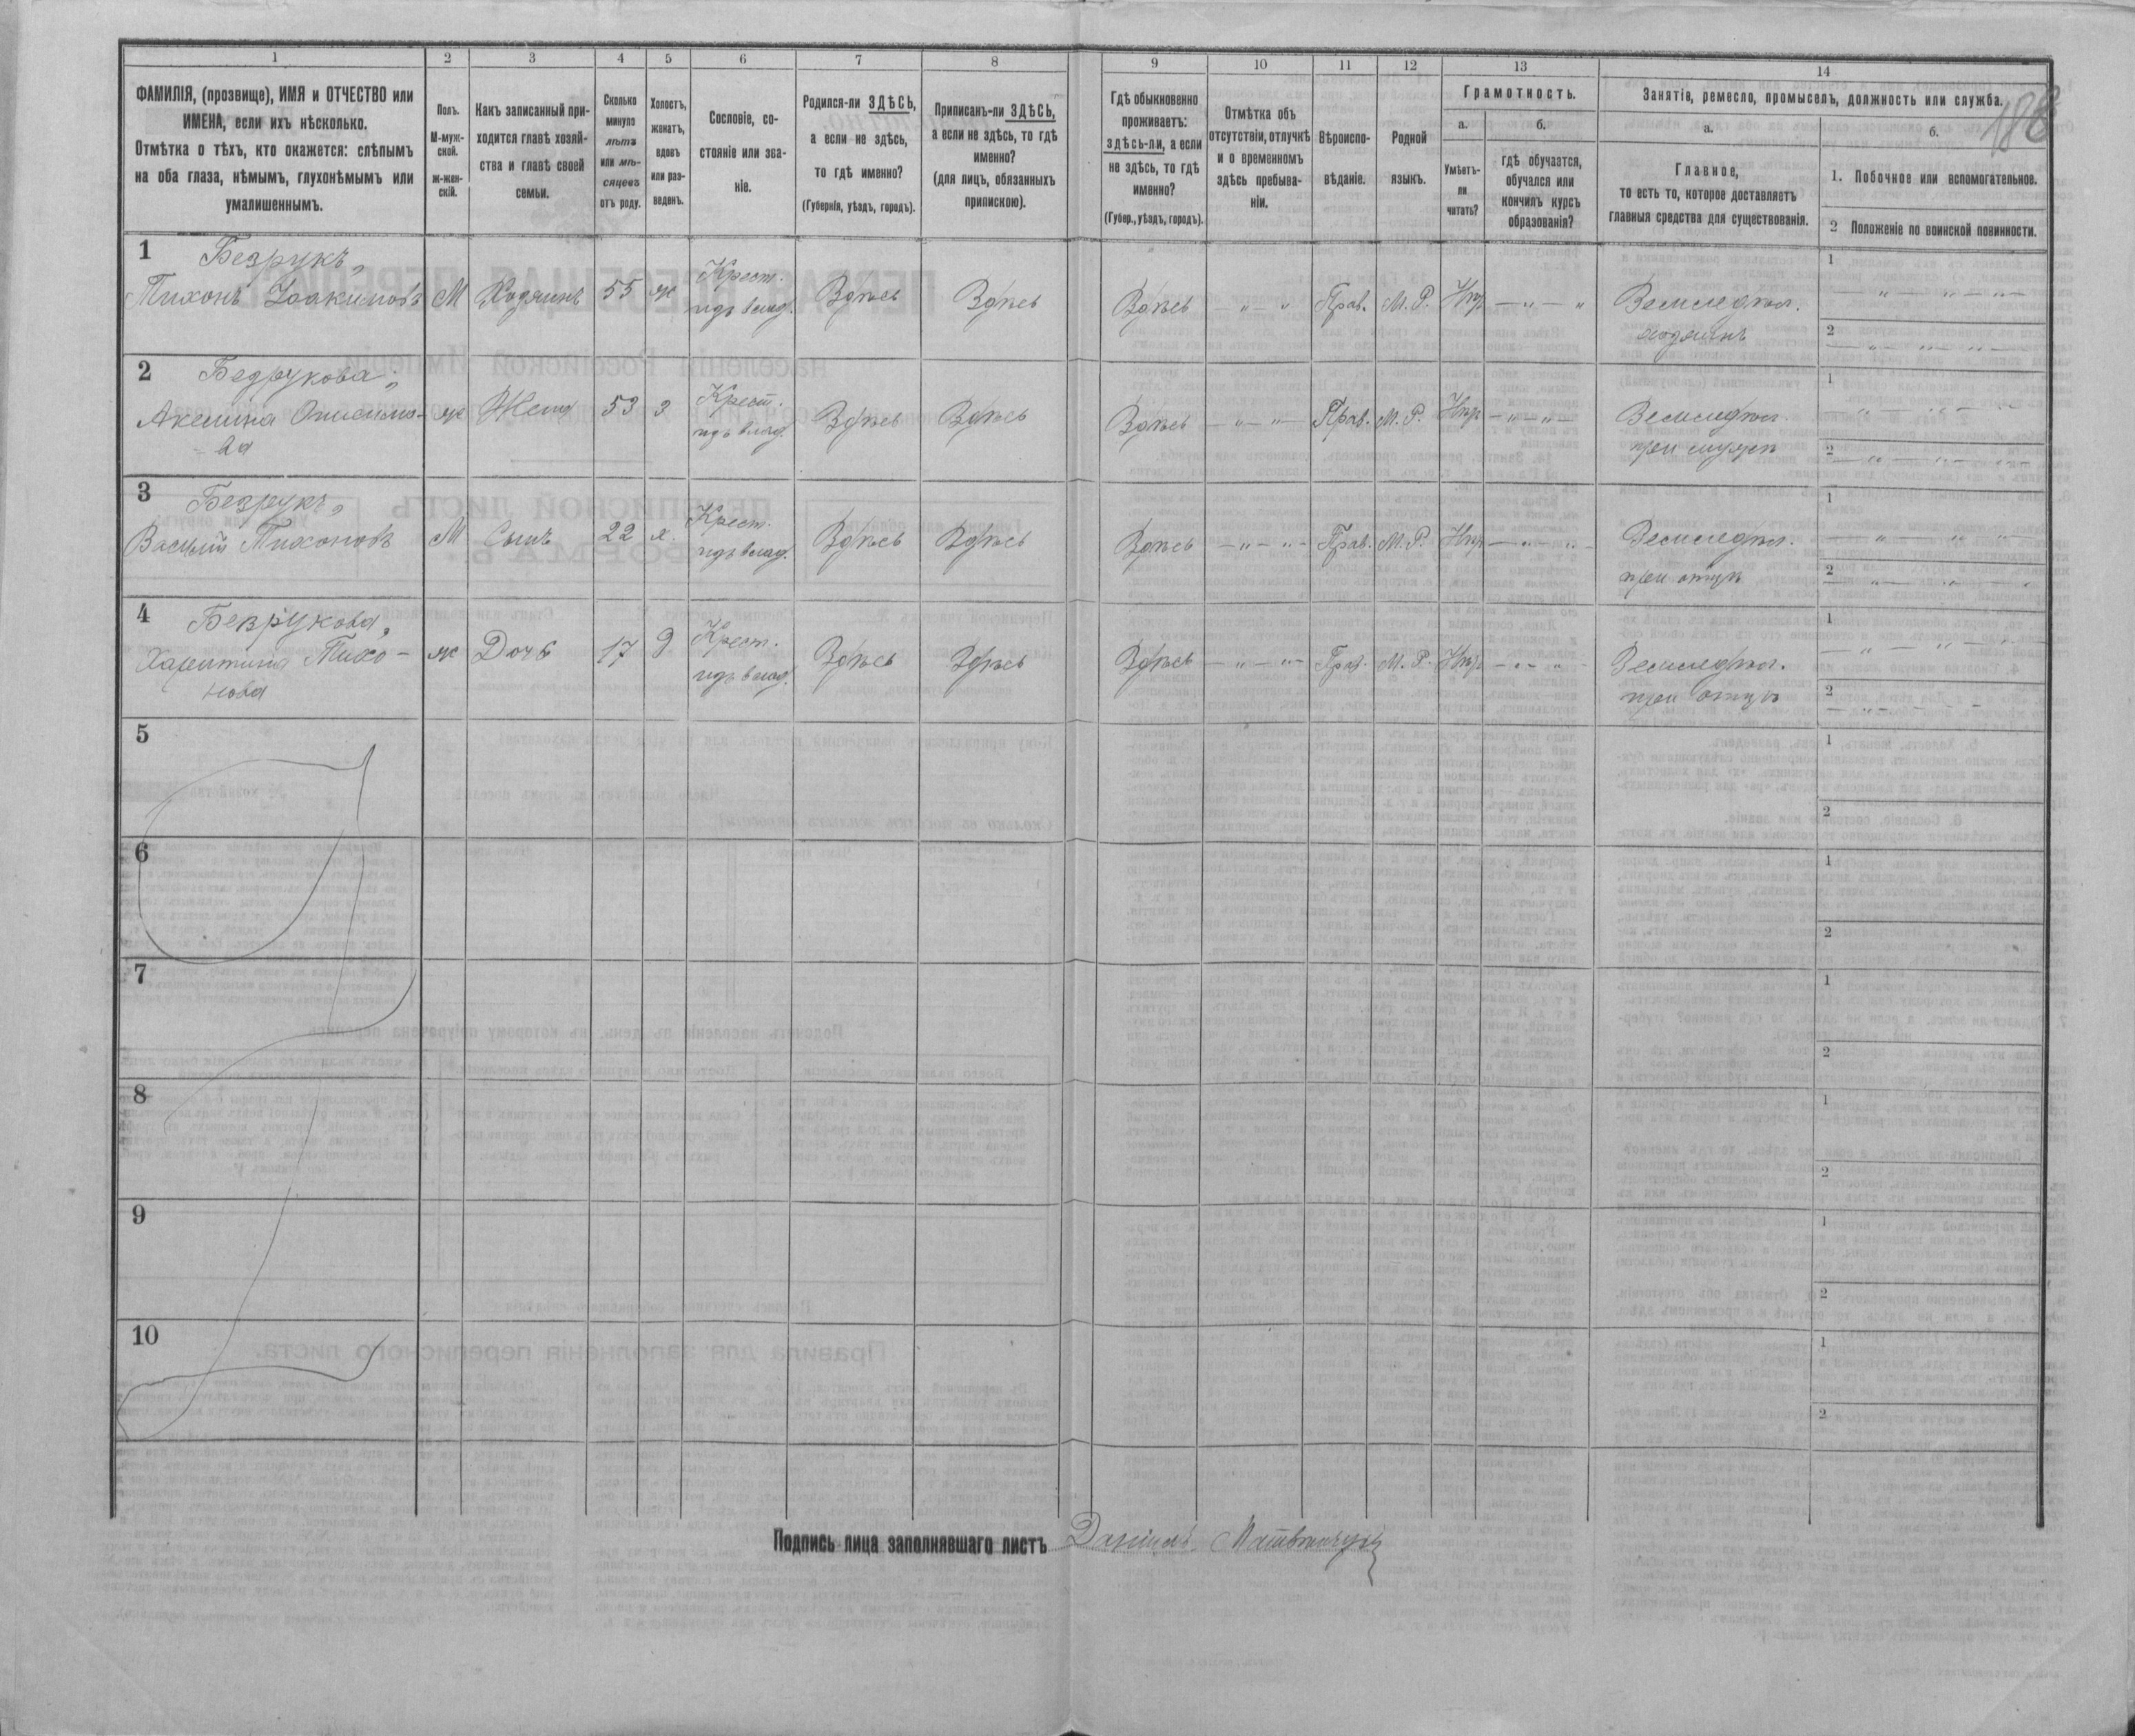 1 2 3 4 5 6 7 8 9 10 11 12 13 14
188
ФАМИЛІЯ, (прозвище), ИМЯ и ОТЧЕСТВО или
ИМЕНА, если ихъ нѣсколько.
Отмѣтка о тѣхъ, кто окажется: слѣпымъ
на оба глаза, нѣмымъ, глухонѣмымъ или
умалишеннымъ.
Полъ.
М-муж-
ской.
ж-жен-
скій.
Какъ записанный при-
ходится главѣ хозяй-
ства и главѣ своей
семьи.
Сколько
минуло
лѣтъ
или мѣ-
сяцевъ
отъ роду.
Холостъ,
женатъ,
вдовъ
или раз-
веденъ.
Сословіе, со-
стояніе или зва-
ніе.
Родился-ли ЗДѢСЬ,
а если не здѣсь,
то гдѣ именно?
(Губернія, уѣздъ, городъ).
Приписанъ-ли ЗДѢСЬ,
а если не здѣсь, то гдѣ
именно?
(для лицъ, обязанныхъ
припискою).
Гдѣ обыкновенно
проживаетъ:
здѣсь-ли, а если
не здѣсь, то гдѣ
именно?
(Губер., уѣздъ, городъ).
Отмѣтка объ
отсутствіи, отлучкѣ
и о временномъ
здѣсь пребыва-
ніи.
Вѣроиспо-
вѣданіе.
Родной
языкъ.
Грамотность.
а.
Умѣетъ-
ли
читать?
б.
гдѣ обучается,
обучался или
кончилъ курсъ
образованія?
Занятіе, ремесло, промыселъ, должность или служба.
а.
Главное,
то есть то, которое доставляетъ
главныя средства для существованія.
б.
1. Побочное или вспомогательное.
2 Положеніе по воинской повинности.
1 Безрукъ,
Тихонъ Іоакимовъ М Хозяинъ 55 ж Крест. Здѣсь Здѣсь Здѣсь — „ „ Прав. М. Р. Нѣт — „ — „ Земледѣл.
изъ влад. хозяинъ
1 — „ — „ — „ —
2 — „ — „ — „ —
2 Безрукова,
Акелина Онисимо- ж Жена 53 з Крест. Здѣсь Здѣсь Здѣсь — „ — „ — Прав. М. Р. Нѣт — „ — „ — Земледѣл.
ва изъ влад. при мужѣ
1 — „ — „ — „
2 — „ — „ — „ —
3 Безрукъ,
Василій Тихоновъ М Сынъ 22 х. Крест. Здѣсь Здѣсь Здѣсь — „ — „ — Прав. М. Р. Нѣт — „ — „ — Земледѣл.
изъ влад. при отцѣ
1 — „ — „ — „ —
2 — „ — „ — „
4 Безрукова,
Харитина Тихо- ж Дочь 17 д Крест. Здѣсь Здѣсь Здѣсь — „ — „ — Прав. М. Р. Нѣт — „ — „ — Земледѣл.
нова изъ влад. при отцѣ
1 — „ — „ — „ —
2 — „ —
5 1
2
6 1
2
7 1
2
8 1
2
9 1
2
10 1
2
Подпись лица заполнявшаго листъ Даніилъ